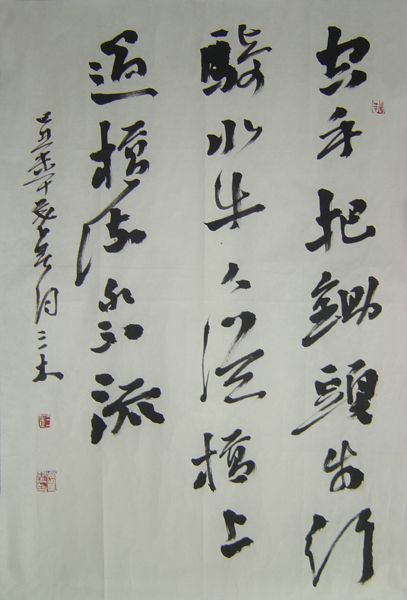 空手把鋤頭步行
騎水牛人從橋上
過橋流水不流
己丑
月三木